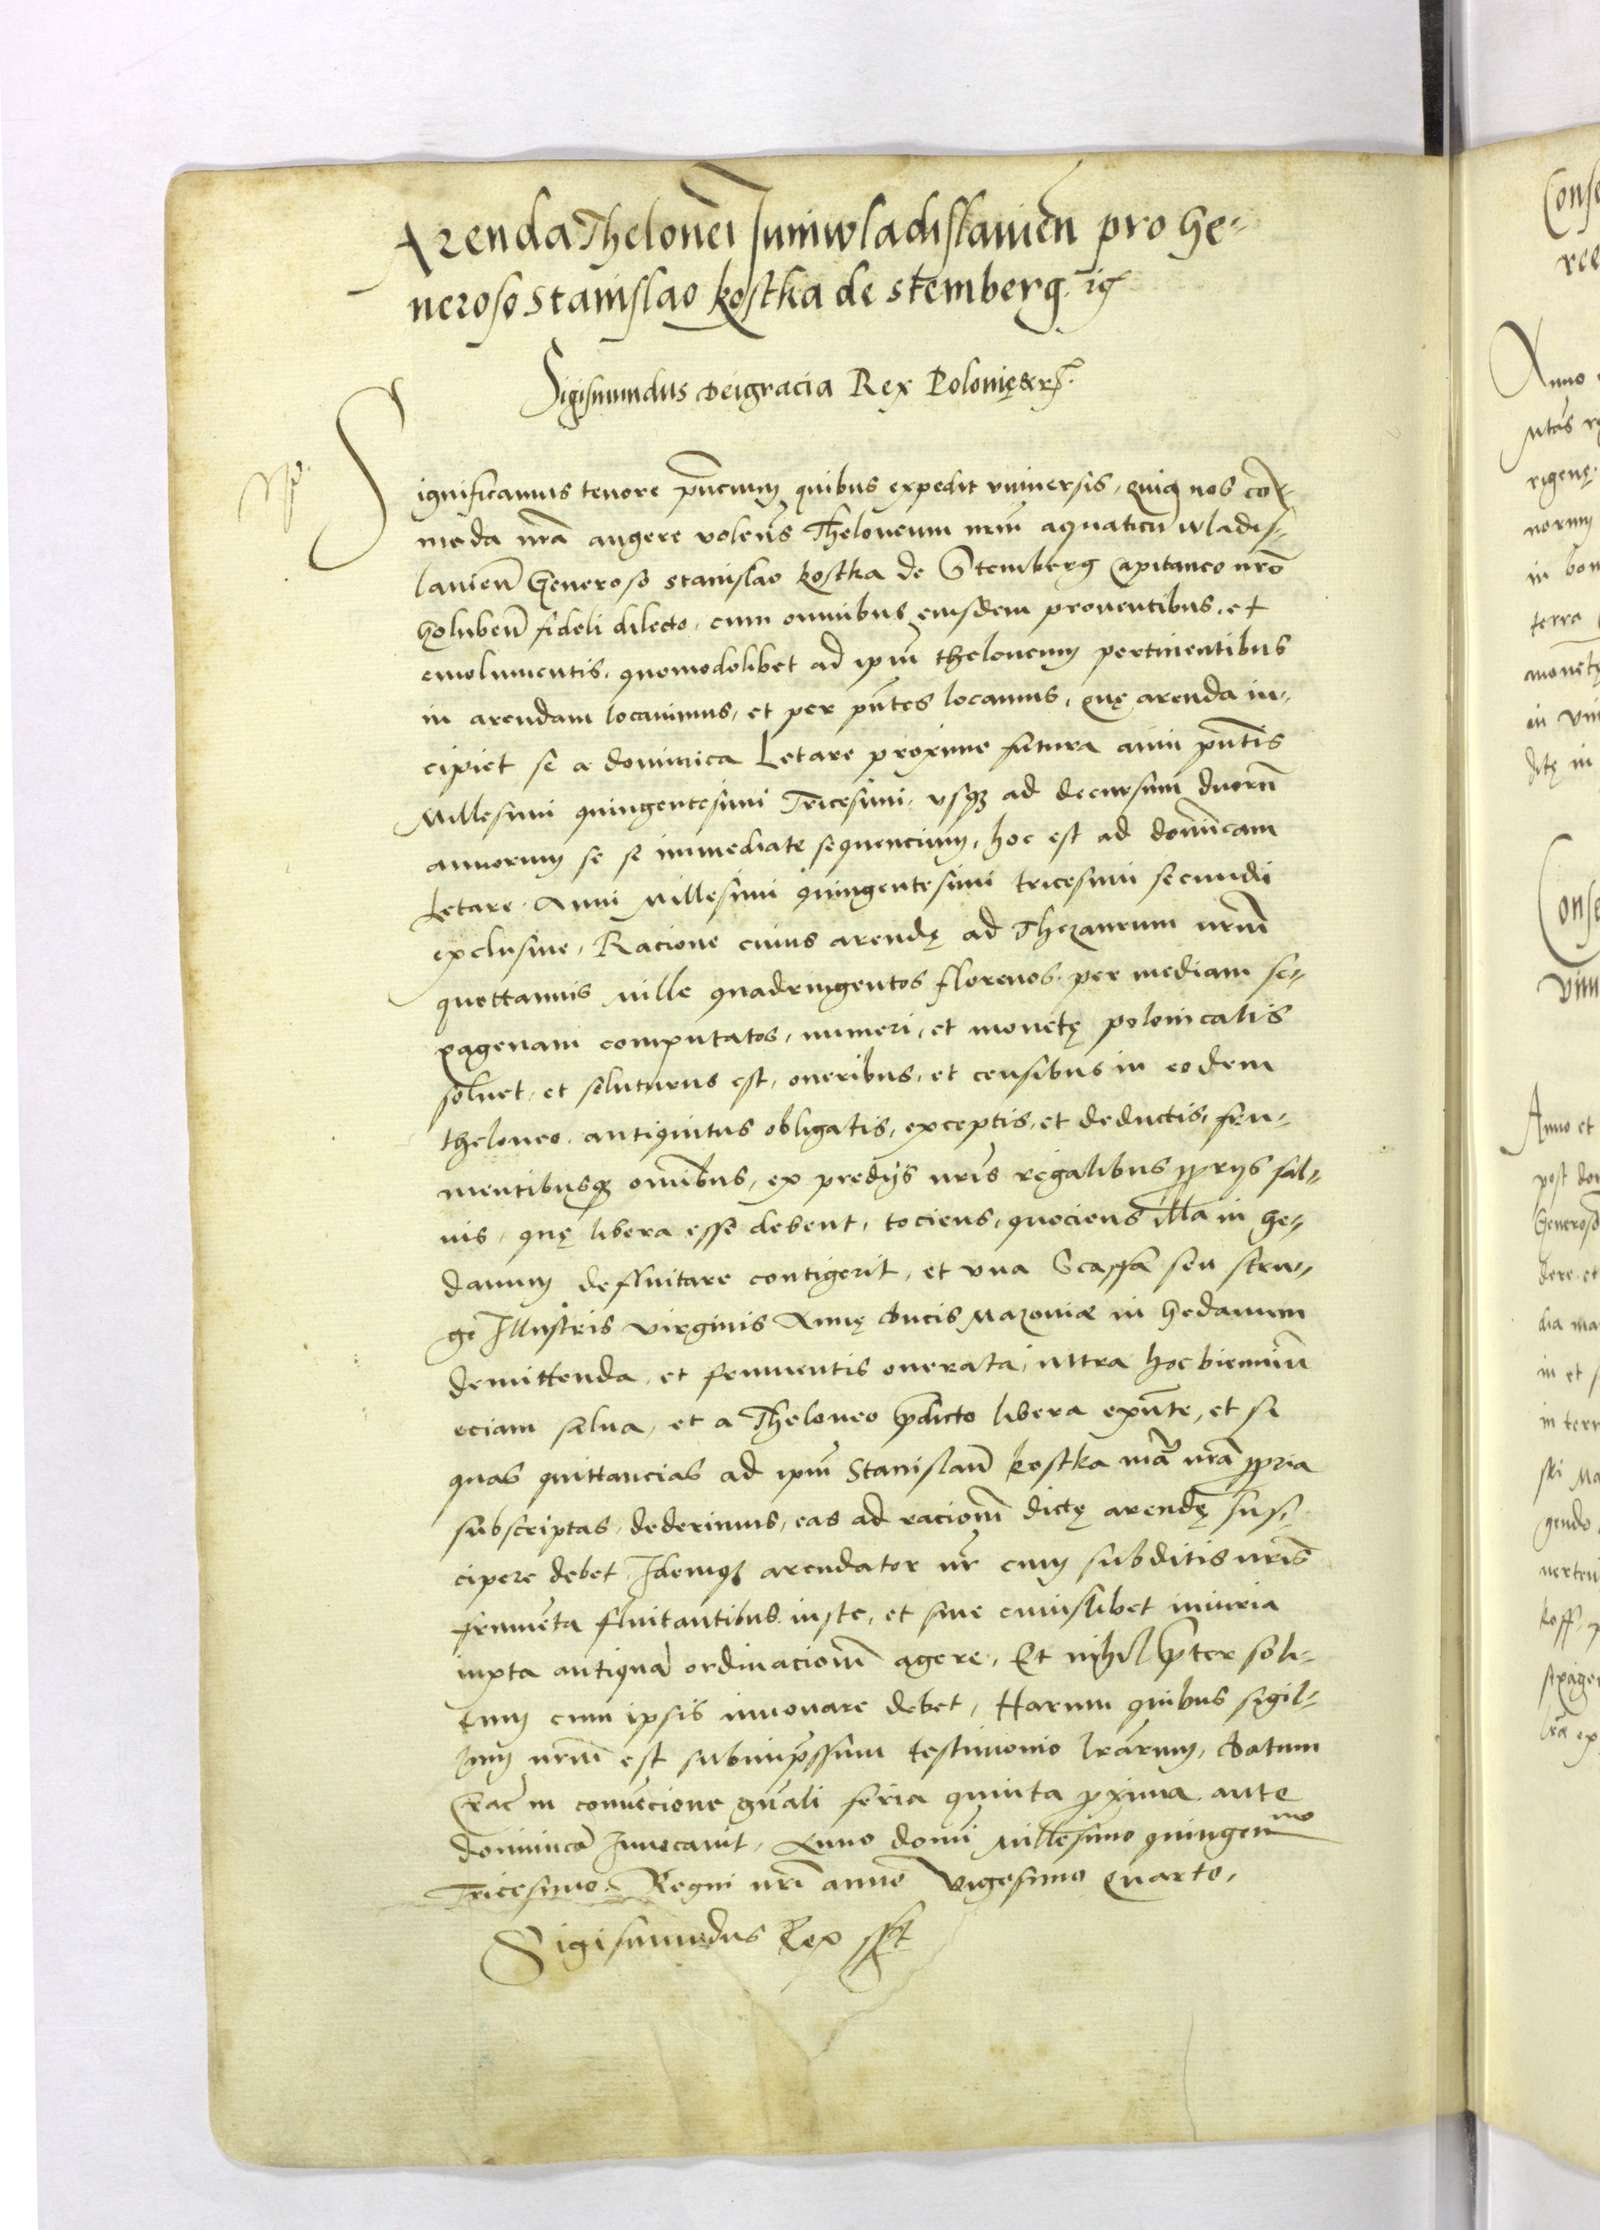 Arenda Thelonei Juniwladislauien̄ pro Ge-
neroso Stanislao Kostka de Stemberg
Sigismundus Dei gracia Rex Polonię &c
Significamus tenore pn̄cium quibus expedit vniuersis, quia nos com-
moda nr̄a augere volen̄s Theloneum nrm̄ aquaticū wladis-
lauien̄ Generoso Stanislao Kostka de Stemberg Capitaneo nrō
Goluben̄ fideli dilecto, cum omnibus eiusdem prouentibus, et
emolumentis, quomodolibet ad ipm̄ theloneum pertinentibus
in arendam locauimus, et per pn̄tes locamus, quę arenda in-
cipiet se a dominica Letare proxime futura anni pn̄tis
Millesimi quingentesimi Tricesimi, vsq3 ad decursum duorū
annorum se se immediate sequencium, hoc est ad dominicam
Letare Anni Millesimi quingentesimi tricesimi secundi
exclusiue, Racione cuius arendę ad Thezaurum nrm̄
quottannis mille quadringentos florenos per mediam se-
xagenam computatos, numeri, et monetę polonicalis
soluet, et soluturus est, oneribus, et censibus in eodem
theloneo antiquitus obligatis, exceptis, et deductis, fru-
mentibusq3 omībus, ex predijs nrīs regalibus propriis sal-
uis, quę libera esse debent, tociens, quociens illa in Ge-
danum defluitare contigerit, et vna Scapha seu stru-
ge Illustris virginis Annę ducis Mazouiæ in Gedanum
demittenda, et frumentis onerata, intra hoc bienniū
eciam salua, et a Theloneo pdicto libera exn̄te, et si
quas quittancias ad ipm̄ Stanislaū Kostka manu nrā propria
subscriptas, dederimus, eas ad racionē dictę arendę sus-
cipere debet Idemq3 arendator nr̄ cum subditis nrīs
frumēta fluitantibus iuste, et sine cuiuslibet iniuria
iuxta antiquā ordinacionē agere, Et nihil pter soli-
tum cum ipsis innouare debet, Harum quibus sigil-
lum nrm̄ est subimpssum testimonio lrārum, Datum
Crac in conuēcione gn̄ali feria quinta proxima ante
dominicā Inuocauit, Anno domī Millesimo quingenmo
Tricesimo Regni nrī anno vigesimo quarto,
Sigismundus Rex sst